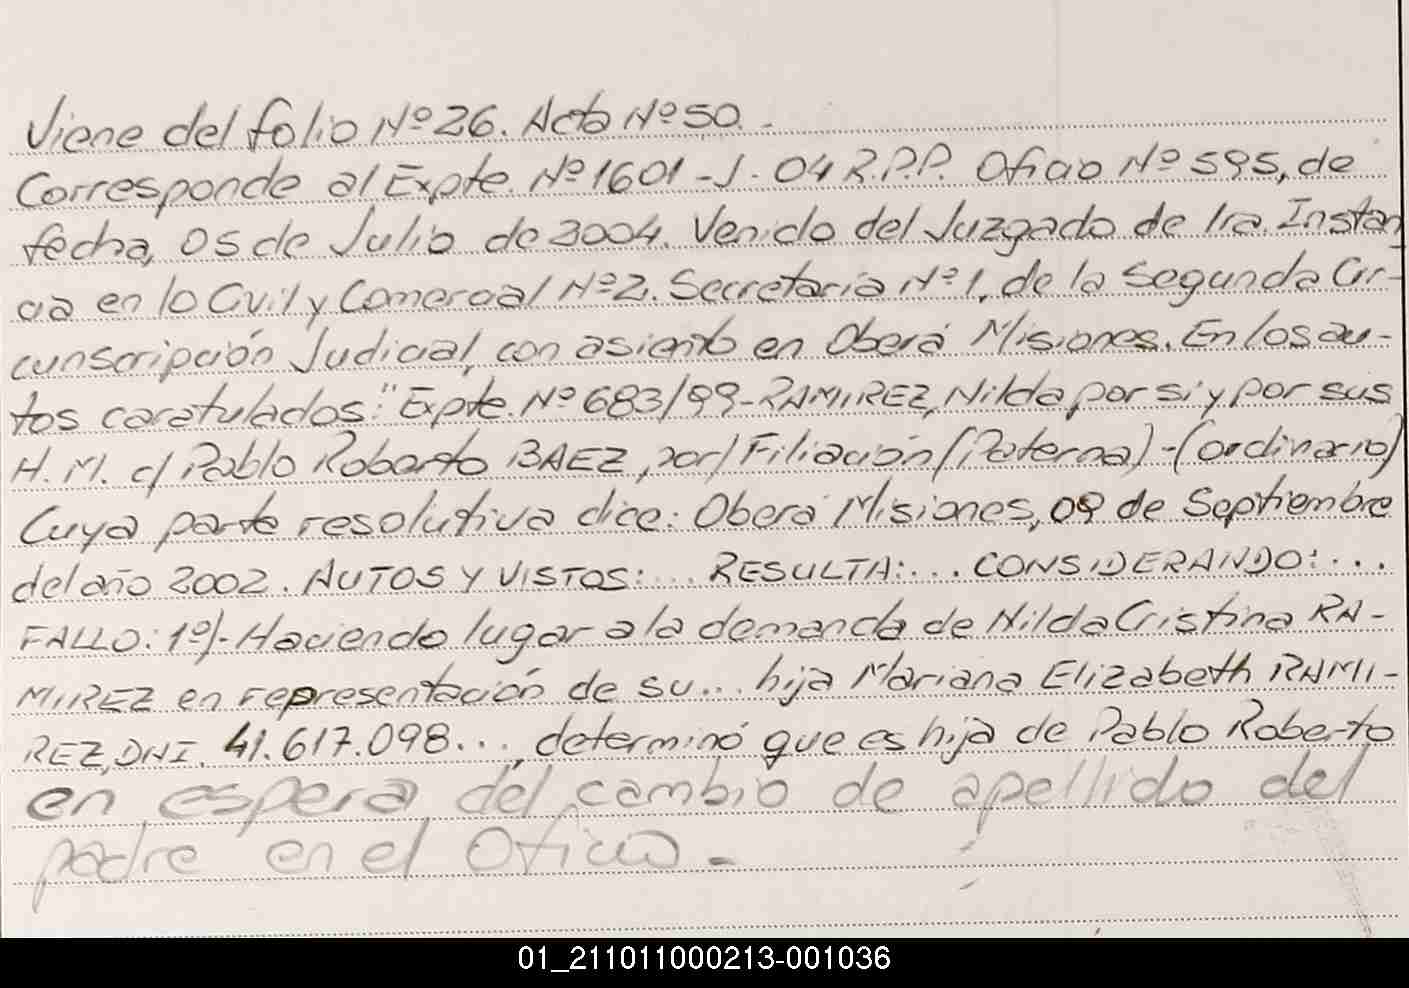 Viene del folio Nº 26. Acta Nº 50.-
Corresponde al Expte. Nº 1601-J-04 R.P.P. Oficio Nº 595, de
fecha, 05 de Julio de 2004. Venido del Juzgado de 1ra. Instan
cia en lo Civil y Comercial Nº 2. Secretaria Nº 1, de la Segunda Cir-
cunscripción Judicial, con asiento en Oberá Misiones. En los au-
tos caratulados: "Expte. Nº 683/99-RAMIREZ, Nilda por sí y por sus
H.M. c/ Pablo Roberto BAEZ, por/ Filiación (Paterna)-(ordinario)
Cuya parte resolutiva dice: Oberá Misiones, 09 de Septiembre
del año 2002. AUTOS Y VISTOS:... RESULTA:... CONSIDERANDO:...
FALLO: 1º)- Haciendo lugar a la demanda de Nilda Cristina RA-
MIREZ en representación de su... hija Mariana Elizabeth RAMI-
REZ, DNI. 41.617.098..., determinó que es hija de Pablo Roberto
en espera del cambio de apellido del
padre en el Oficio.-
01_211011000213-001036